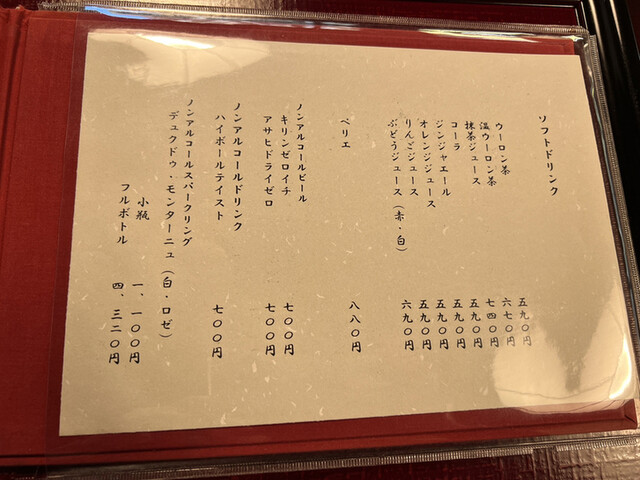 ソフトドリンク
ウーロン茶 五九〇円
温ウーロン茶 六七〇円
抹茶ジュース 七四〇円
コーラ 五九〇円
ジンジャエール 五九〇円
オレンジジュース 五九〇円
りんごジュース 五九〇円
ぶどうジュース（赤・白） 六九〇円
ペリエ 八八〇円
ノンアルコールビール
キリンゼロイチ 七〇〇円
アサヒドライゼロ 七〇〇円
ノンアルコールドリンク
ハイボールテイスト 七〇〇円
ノンアルコールスパークリング
デュクドゥ・モンターニュ（白・ロゼ）
小瓶 一、一〇〇円
フルボトル 四、三二〇円